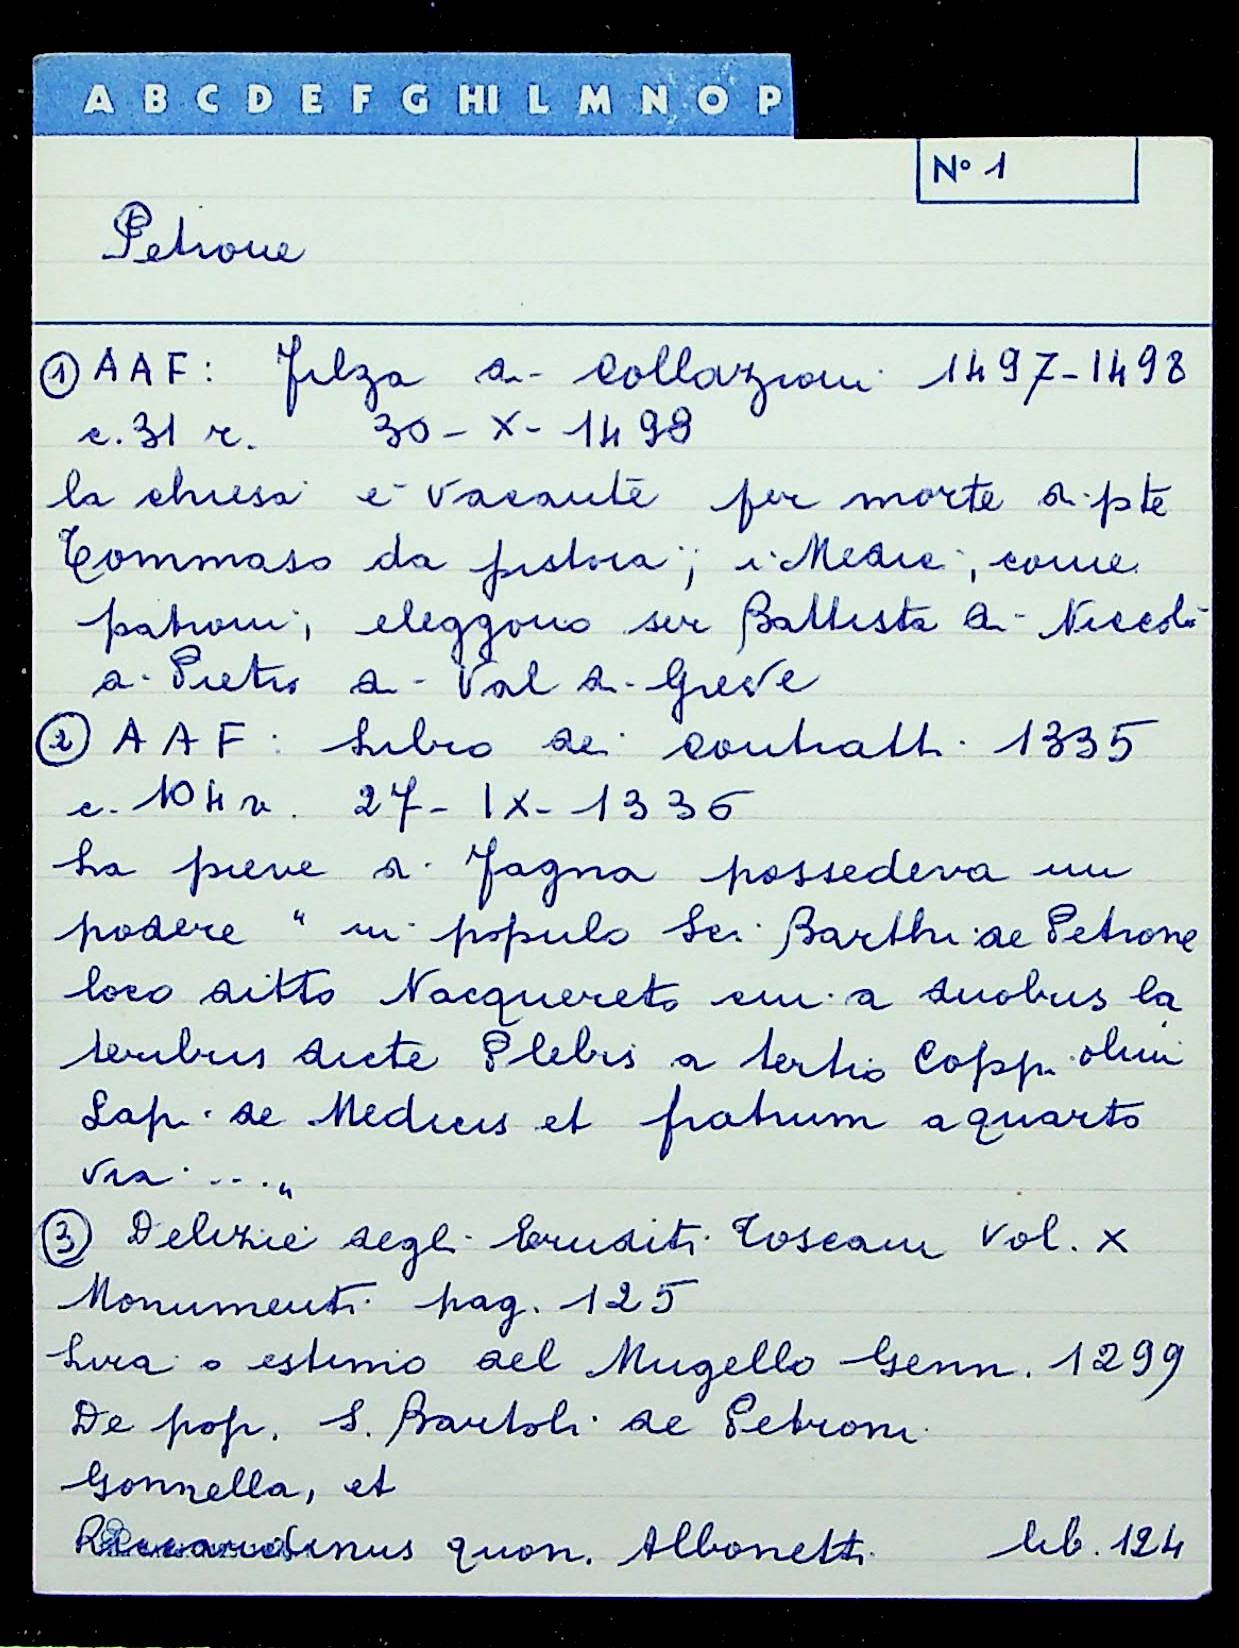 A B C D E F G HI L M N O P
N° 1
Petrone
① AAF: Filza di Collazioni 1497-1498
c. 31 r. 30-X-1498
la chiesa è vacante per morte di pte
Tommaso da pistoia; i Medici, come
patroni, eleggono ser Battista di Niccolò
di Pietro di Val di Greve
② AAF: Libro dei contratti 1335
c. 104 v. 27-IX-1336
La pieve di Fagna possedeva un
podere " in populo Sci Barthi de Petrone
loco ditto Nacquereto cui a duobus la
teribus dicte Plebis a tertio Coppi olim
Lapi de Medicis et fratrum a quarto
via ...."
③ Delizie degli Eruditi Toscani Vol. X
Monumenti pag. 125
Lira o estimo del Mugello Genn. 1299
De pop. S. Bartoli de Petroni
Gonnella, et
Riccardinus quon. Albonetti lib. 124